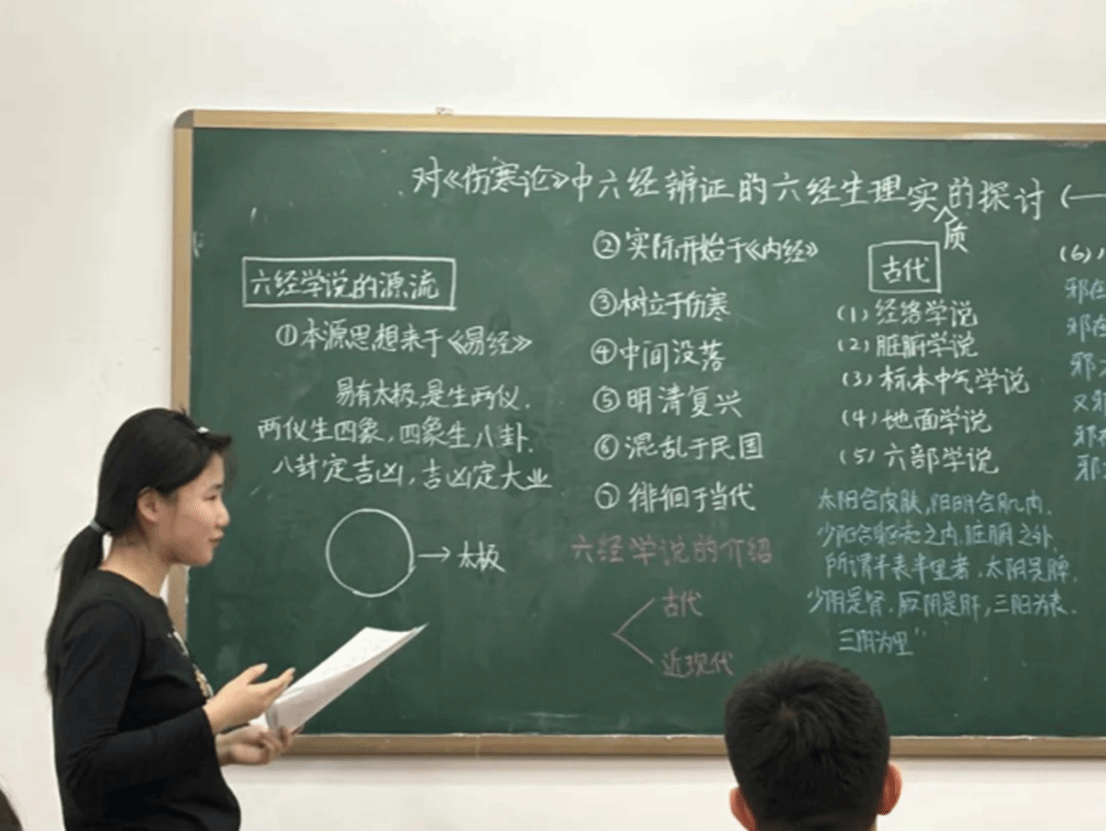 对《伤寒论》中六经辨证的六经生理实质的探讨(一
六经学说的源流
①本源思想来于《易经》
易有太极,是生两仪.
两仪生四象,四象生八卦.
八卦定吉凶,吉凶定大业
太极
②实际开始于《内经》
③树立于伤寒
④中间没落
⑤明清复兴
⑥混乱于民国
⑦徘徊于当代
六经学说的介绍
古代
近现代
古代
(1)经络学说
(2)脏腑学说
(3)标本中气学说
(4)地面学说
(5)六部学说
太阳合皮肤,阳明合肌肉.
少阳合躯壳之内,脏腑之外,
所谓半表半里者.太阴是脾.
少阴是肾.厥阴是肝,三阳为表.
三阴为里"
(6)
邪在
邪在
邪入
又邪
邪在
邪